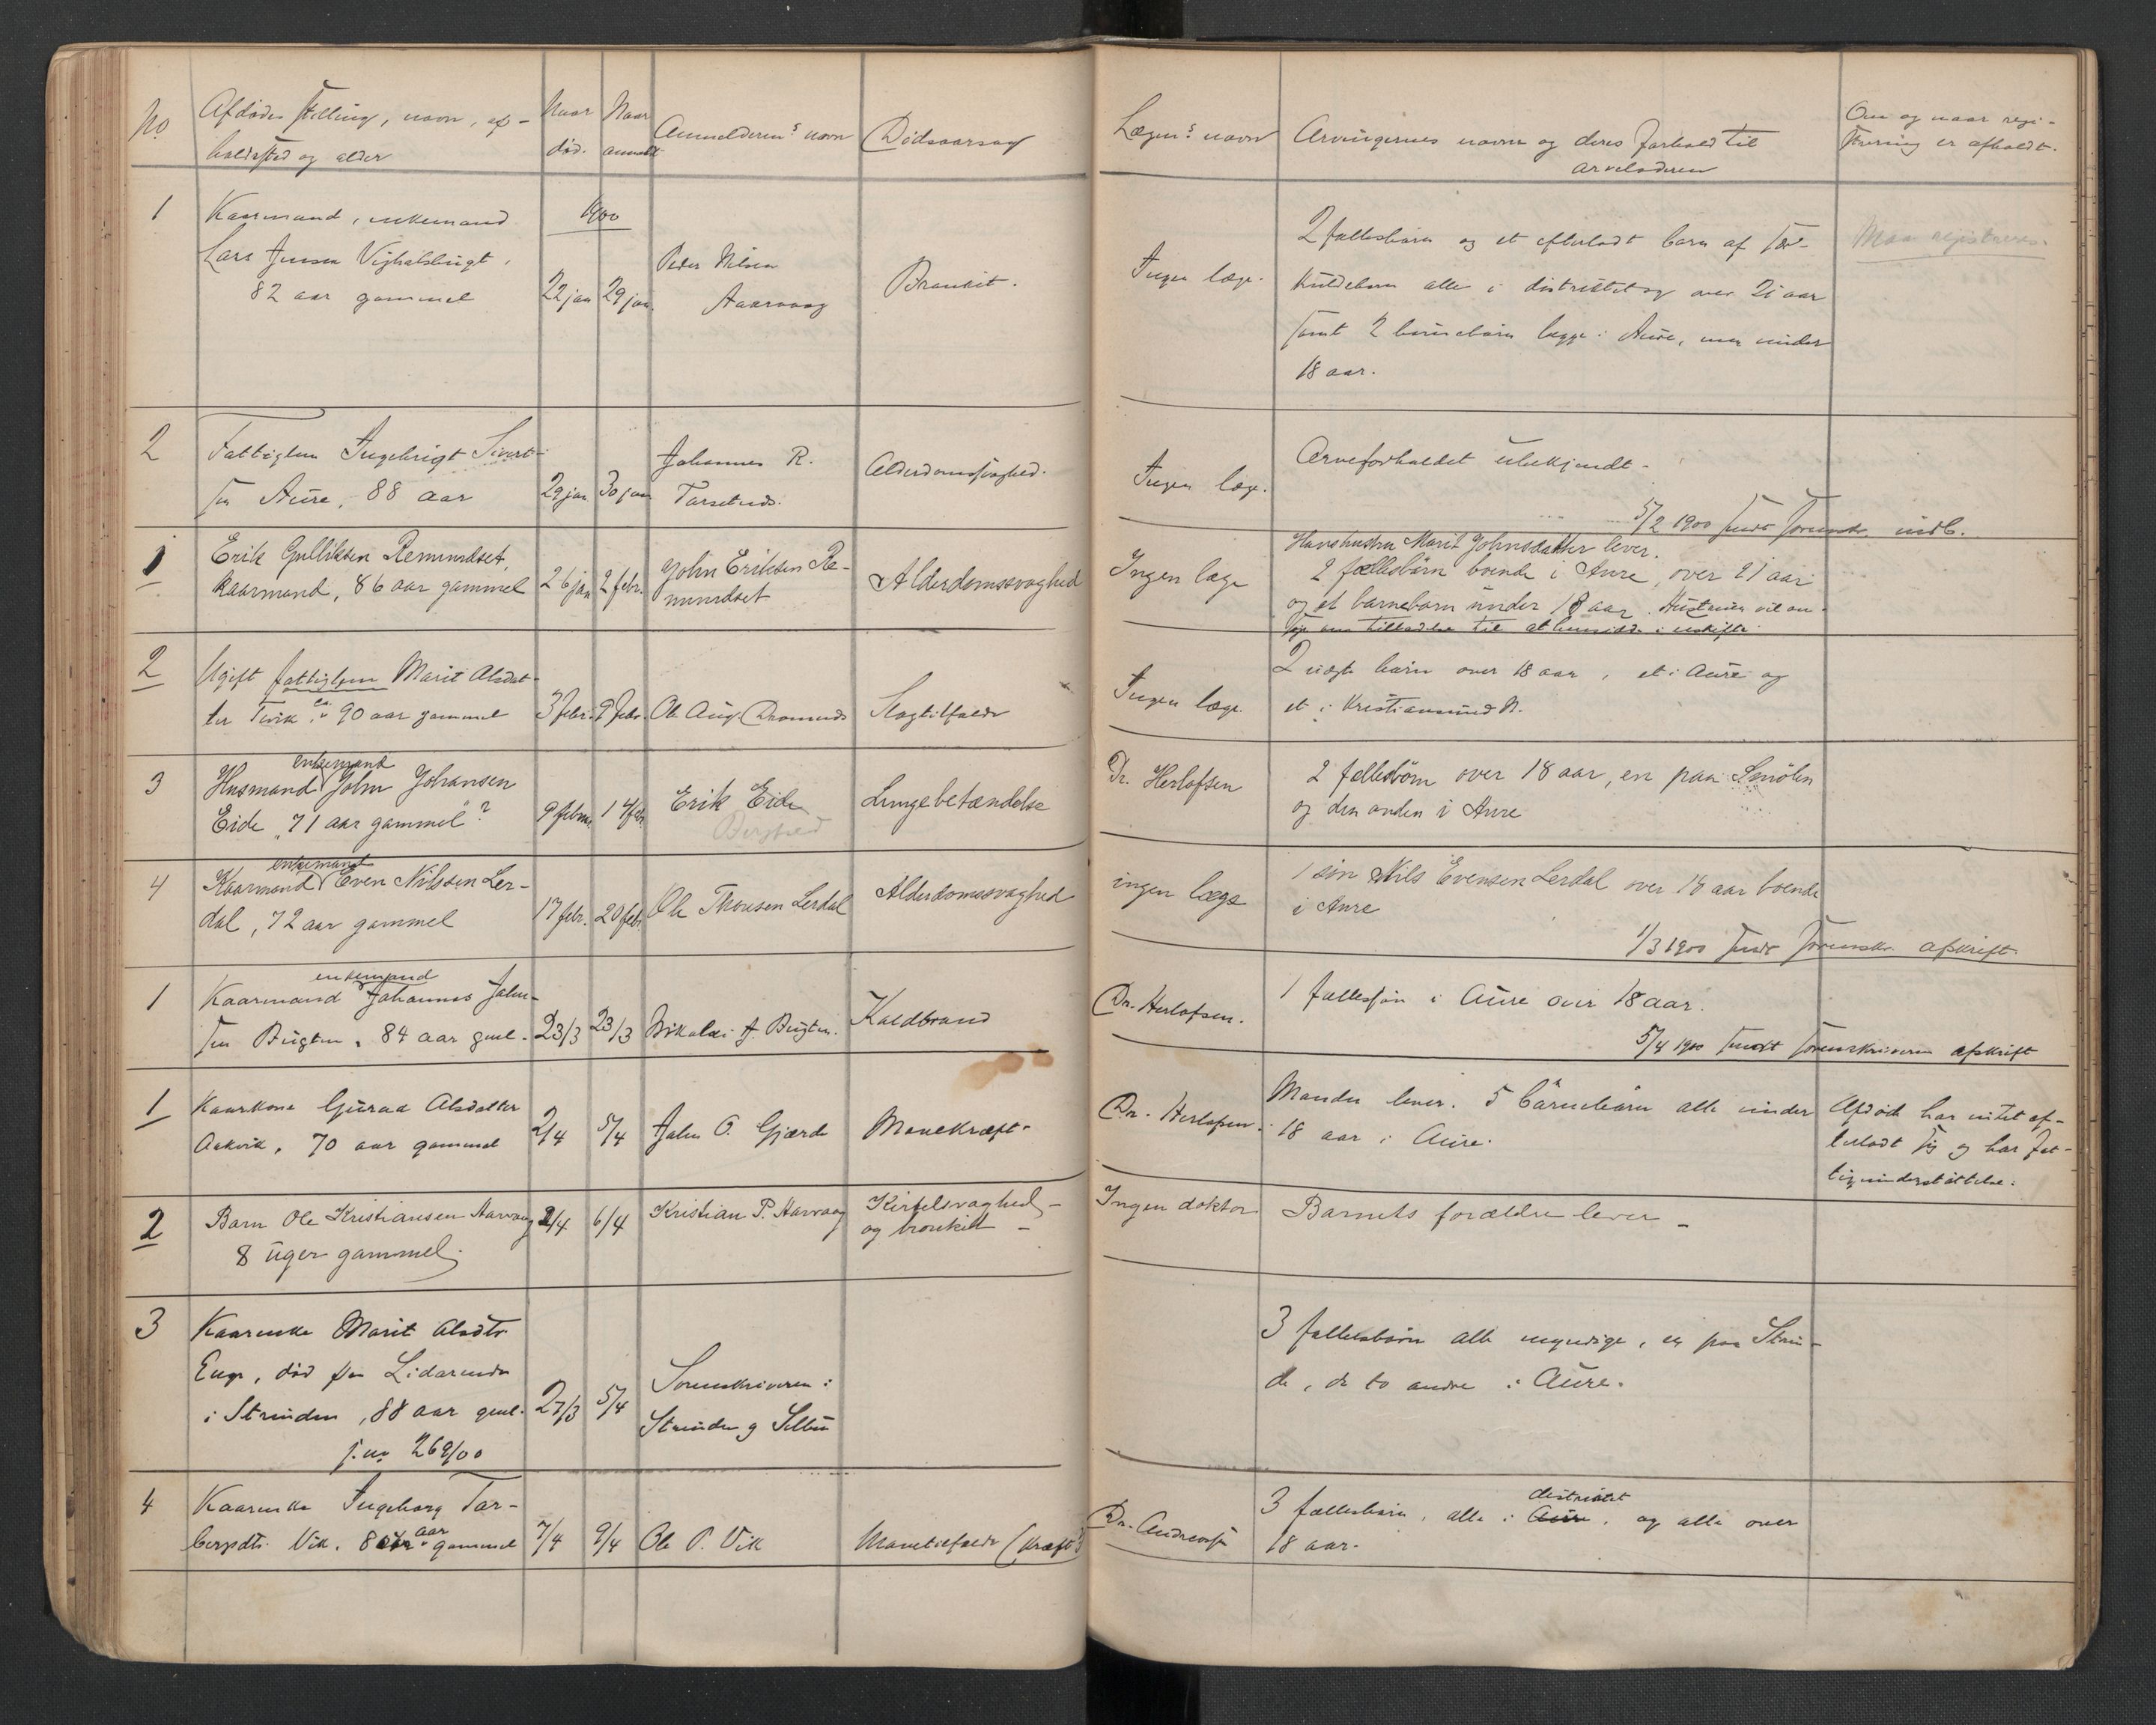 No
Afdødes stilling, navn, op-
holdssted og alder
Naar
død.
Naar
anmeldt
Anmelderens navn
Dødsaarsag
Lægens navn
Arvingernes navne og deres forhold til
arveladeren
Om og naar regi-
strering er afholdt.
1
Kaarmand, enkemand
Lars Jensen
82 aar gammel
1900
22 jan
29 jan.
Peder Nilsen
Aarvaag
Bronkit.
Ingen læge.
2 fællesbørn og et efterladt barn af
alle i distriktet og over 21 aar
samt 2 barnebørn begge i Aure, men under
18 aar.
Maa registreres.
2
Fattiglem Ingebrigt Sivert-
sen Aure, 88 aar
29 jan
30 jan
Johannes R.
Alderdomssvaghed.
Ingen læge.
Arveforholdet ubekjendt.
5/2 1900 sendt sorenskr. indb.
1
Erik Gulliksen Remundset,
kaarmand, 86 aar gammel
26 jan
2 febr.
John Eriksen Re-
mundset
Alderdomssvaghed
Ingen læge
Hans hustru Marit Johnsdatter lever.
2 fællesbørn boende i Aure, over 21 aar
og et barnebarn under 18 aar. Hustruen vil an-
søge om tilladelse til at hensidde i uskifte.
2
Ugift fattiglem Marit Olsdat-
ter Tevik, ca. 90 aar gammel
3 febr.
9 febr.
Ole Aug.
Slagtilfælde
Ingen læge.
2 uægte børn over 18 aar, et i Aure og
et i Kristiansund N.
3
enkemand
Husmand John Johansen
Eide, "71 aar gammel"?
9 febru.
14 febr.
Erik Eide
Lungebetændelse
Dr. Herlofsen
2 fællesbørn over 18 aar, en paa Smølen
og den anden i Aure
4
enkemand
Kaarmand Even Nilssen Ler-
dal, 72 aar gammel
17 febr.
20 febr.
Ole Thoresen Lerdal
Alderdomssvaghed
ingen læge
1 søn Nils Evensen Lerdal over 18 aar boende
i Aure
1/3 1900 sendt sorenskr. afskrift.
1
enkemand
Kaarmand Johannes John-
sen Bugten, 84 aar gml.
23/3
23/3
Nikolai J. Bugten.
Koldbrand
Dr. Herlofsen.
1 fællessøn i Aure over 18 aar.
5/4 1900 sendt sorenskriveren afskrift
1
Kaarkone Guraa Olsdatter
Aakvik, 70 aar gammel
2/4
5/4
John O. Gjærde
Mavekræft.
Dr. Herlofsen.
Manden lever. 5 barnebørn alle under
18 aar i Aure.
Afdøde har intet ef-
terladt sig og har fat-
tigunderstøttelse.
2
Barn Ole Kristiansen Aarvaag
8 uger gammel.
2/4
6/4
Kristian P. Aarvaag
Kirtelsvaghed
og bronkit
Ingen doktor
Barnets forældre lever
3
Kaarenke Marit Olsdtr
Enge, død paa
i Strinden, 88 aar gml.
j.nr 269/00
27/3
5/4
Sorenskriveren i
Strinden og Selbu
3 fællesbørn alle myndige, en paa Strin-
de, de to andre i Aure.
4
Kaarenke Ingeborg Tor-
bergsdtr. Vik, aar gammel
7/4
9/4
Ole O. Vik
Mavetilfælde (kræft)
Dr. Andreassen
distriktet
3 fællesbørn, alle i Aure, og alle over
18 aar.